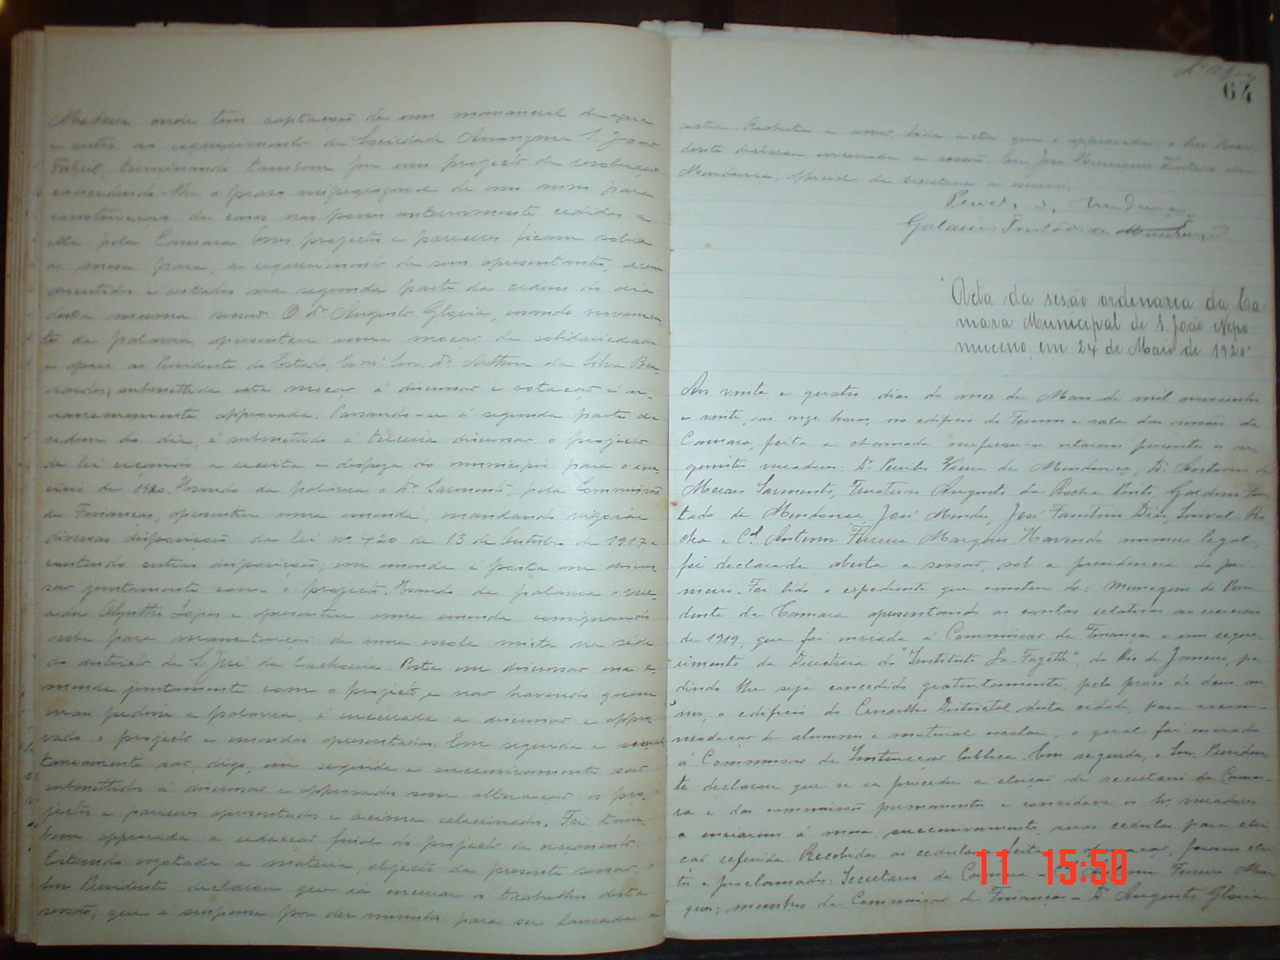 Matriz onde tem captação de um manancial de agua
e outro ao requerimento da Sociedade Anonyma S. João
Fabril, terminando tambem por um projecto de resolução
concedendo-lhe o praso improrogavel de um anno para
construcção de casas nos passos anteriormente cedidos a
ella pela Camara. Esses projectos e pareceres ficam sobre
a mesa para, a requerimento de seus apresentantes, serem
discutidos e votados na segunda parte da ordem do dia
desta mesma sessão. O Dr. Augusto Gloria, usando novamen
te da palavra, apresentou uma moção de solidariedade
e apoio ao Presidente do Estado, Exmo. Snr. Dr. Arthur da Silva Ber
nardes; submettida esta moção á discussão e votação é u-
nanimemente approvada. Passando-se á segunda parte da
ordem do dia, é submettido á terceira discussão o projecto
de lei orçando a receita e despeza do municipio para o exer
cicio de 1920. Usando da palavra o Dr. Sarmento, pela Commissão
de Finanças, apresentou uma emenda, mandando vigorar
diversas disposições da lei nº 420 de 13 de Outubro de 1917 e
contendo outras disposições; esta emenda é posta em discus
são juntamente com o projecto. Usando da palavra o vere
ador Olyntho Lopes e apresentou uma emenda consignando
verba para manutenção de uma escola mixta na séde
do districto de S. José da Cachoeira. Posta em discussão esta e-
menda juntamente com o projecto, e não havendo quem
mais pedisse a palavra, é encerrada a discussão e appro
vado o projecto e emendas apresentadas. Em seguida e
tamente são, digo, em seguida e successivamente são
submettidos á discussão e approvados sem alteração os pro-
jectos e pareceres apresentados e acima relacionados. Foi tam-
bem approvada a redacção final do projecto de orçamento.
Estando esgotada a materia, objecto da presente sessão, o
Snr. Presidente declarou que ia encerrar os trabalhos desta
sessão, que é suspensa por dez minutos para ser lavrada a
64
acta. Reaberta a sessão, lida acta que é approvada, o Snr. Presi-
dente declarou encerrada a sessão. Eu José Henriques Furtado de
Mendonça, official da secretaria a escrevi.
Galdino Furtado de Mendonça
Acta da sesão ordinaria da Ca
mara Municipal de S. João Nepo
muceno, em 24 de Maio de 1920
Aos vinte e quatro dias do mez de Maio de mil novecentos
e vinte, ás onze horas, no edificio do Forum e sala das sessões da
Camara, feita a chamada verificou-se estarem presentes os se
guintes vereadores: Dr. Pericles Vieira de Mendonça, Dr. Antonio de
Moraes Sarmento, Augusto da Rocha Pinto, Galdino Fur
tado de Mendonça, José Mendes, José Faustino Dias, Lourival Ro
cha e Cel. Antonio Ferreira Marques. Havendo numero legal,
foi declarada aberta a sessão, sob a presidencia do pri
meiro. Foi lido o expediente que constou de: Mensagem do Presi
dente da Camara apresentando as contas relativas ao exercicio
de 1919, que foi enviada á Commissão de Finanças e um reque
rimento da Directoria do "Instituto La-Fayette", do Rio de Janeiro, pe
dindo lhe seja concedido gratuitamente, pelo praso de dous an
nos, o edificio do Conselho Districtal desta cidade, para accom-
modação de alumnos e material escolar, o qual foi enviado
á Commissão de Instrucção publica. Em seguida, o Snr. Presiden
te declarou que se ia proceder a eleição de secretario da Cama-
ra e das commissões permanentes e convidava os Srs. vereadores
a enviarem á mesa, successivamente, suas cedulas para elei
ção referida. Recebidas as cedulas e feita a apuração, foram elei
tos e proclamados: Secretario da Camara - Cel. Antonio Ferreira Mar
ques; membros da Commissão de Finanças - Dr. Augusto Gloria
11 15:50